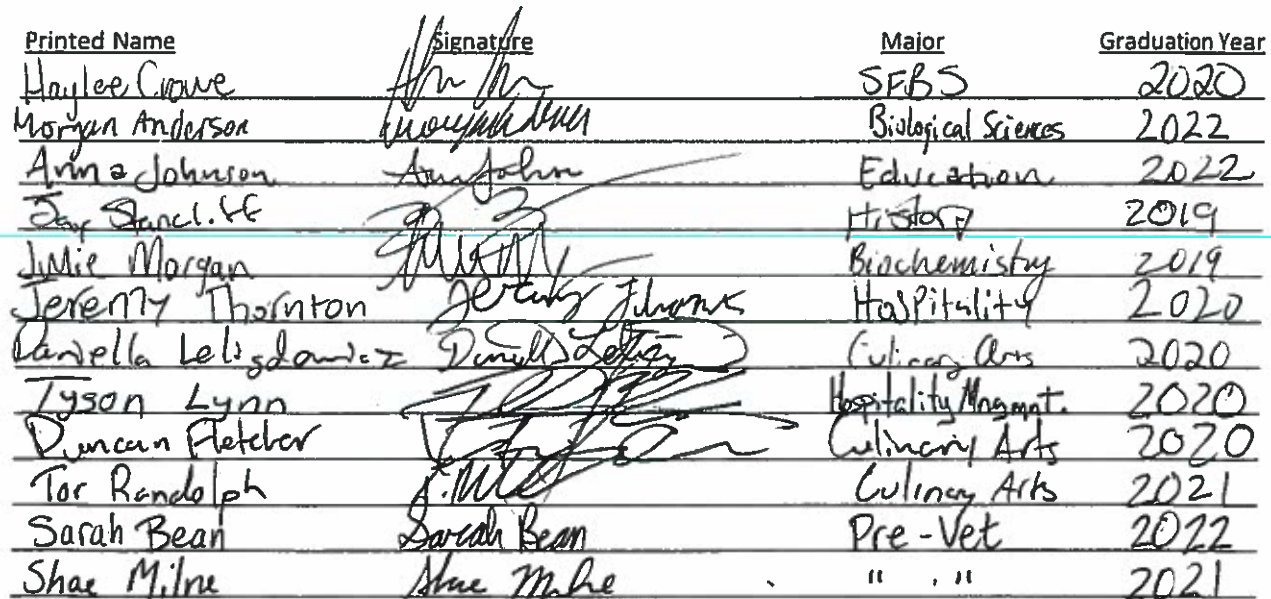 Printed Name Signature Major Graduation Year
Haylee Crowe SFBS 2020
Morgan Anderson Biological Sciences 2022
Anna Johnson Education 2022
Stancliff History 2019
Julie Morgan Biochemistry 2019
Jeremy Thornton Hospitality 2020
Daniella Culinary Arts 2020
Tyson Lynn Hospitality Mngmnt. 2020
Duncan Fletcher Culinary Arts 2020
Tor Randolph Culinary Arts 2021
Sarah Bean Sarah Bean Pre-Vet 2022
Shae Milne Shae Milne " " 2021